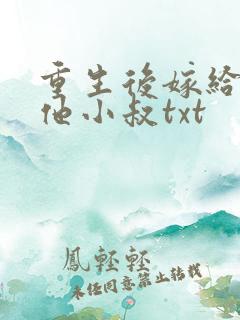 重生後嫁給
他小叔txt
鳳輕輕
未經同意禁止轉載